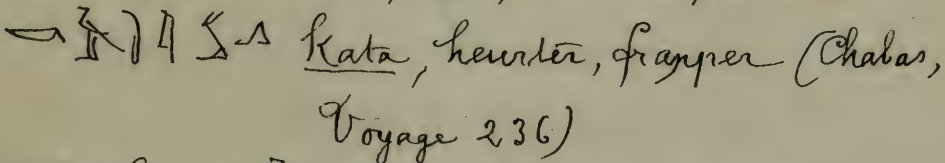 Kata, heurter, frapper (Chabas,
Voyage 236)